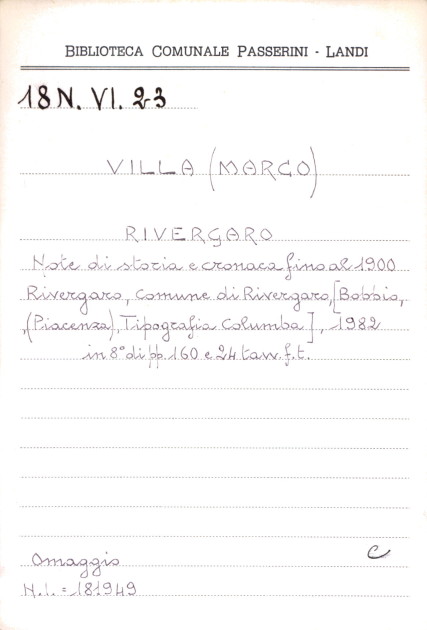 BIBLIOTECA COMUNALE PASSERINI - LANDI
18 N. VI. 23
VILLA (MARCO)
RIVERGARO
Note di storia e cronaca fino al 1900
Rivergaro, Comune di Rivergaro, [Bobbio,
(Piacenza), Tipografia Columba], 1982
in 8° di pp. 160 e 24 tavv. f. t.
Omaggio
C
N.I. = 181949